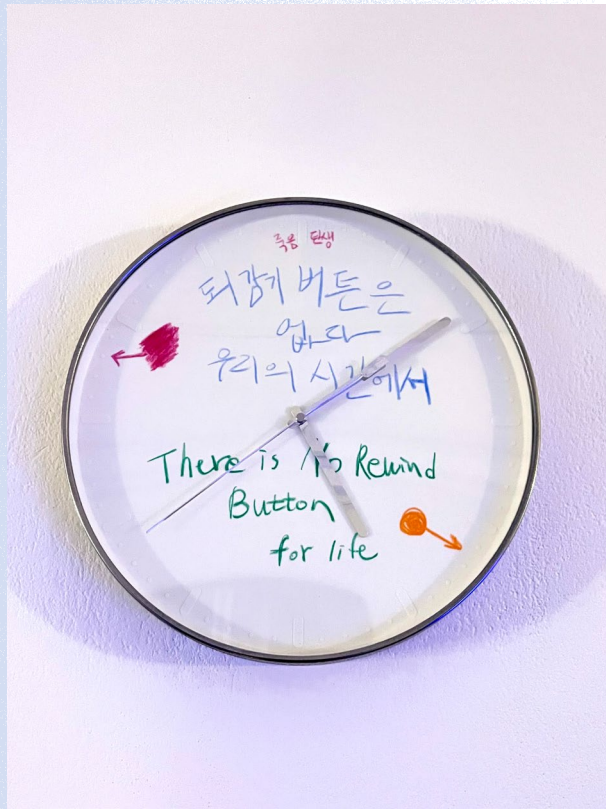 죽음 탄생
되감기 버튼은
없다
우리의 시간에서
There is No Rewind
Button
for life